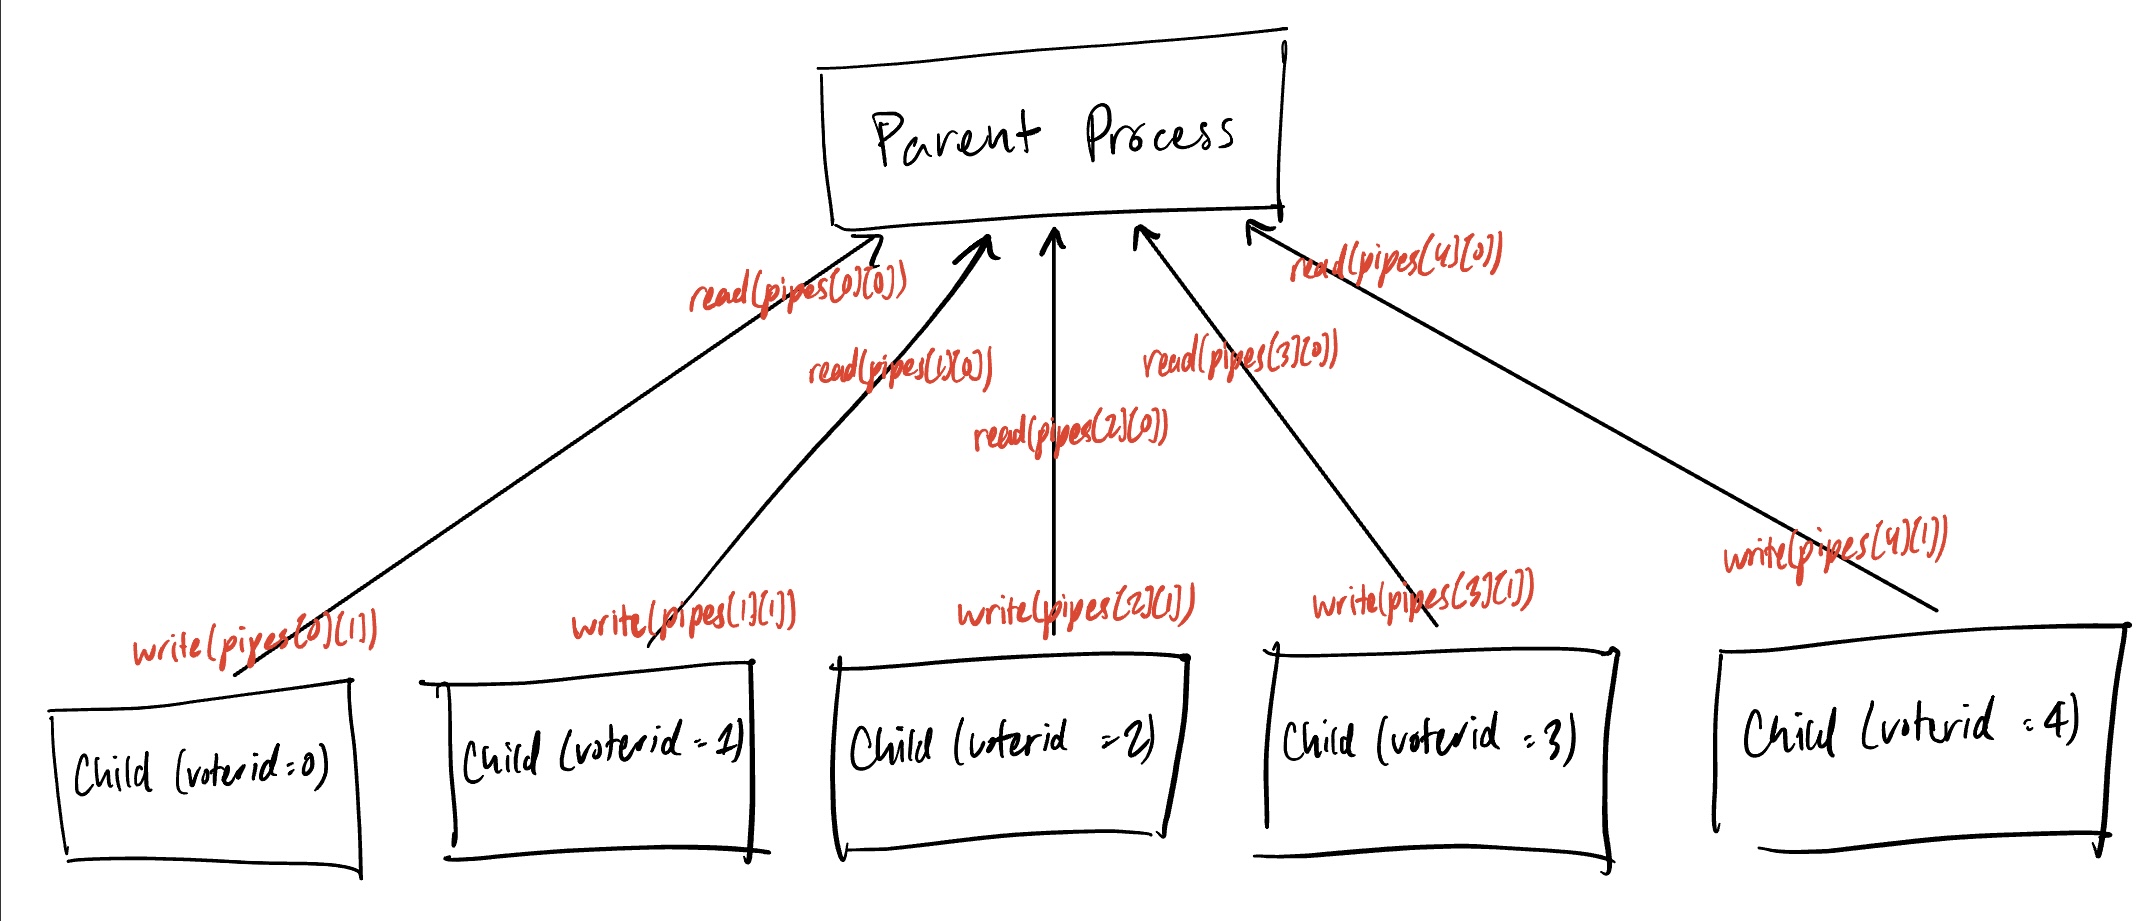 Parent Process
read(pipes[0][0])
read(pipes[4][0])
read(pipes[1][0])
read(pipes[3][0])
read(pipes[2][0])
write(pipes[4][1])
write(pipes[0][1])
write(pipes[1][1])
write(pipes[2][1])
write(pipes[3][1])
Child (voterid=0)
Child (voterid=1)
Child (voterid=2)
Child (voterid=3)
Child (voterid=4)